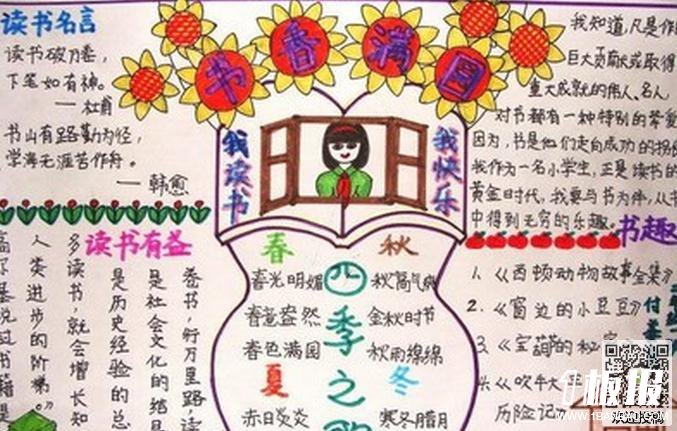 书香满园
读书名言
读书破万卷，
下笔如有神。
— 杜甫
书山有路勤为径，
学海无涯苦作舟。
— 韩愈
我读书
我快乐
我知道，凡是作
巨大贡献或取得
重大成就的伟人、名人
对书都有一种特别的挚爱
因为，书是他们走向成功的拐
我作为一名小学生，正是读书的
黄金时代，我要与书为伴，从书
中得到无穷的乐趣。
读书有益
卷书，行万里路，读
是社会文化的结
是历史经验的总
多读书，就会增长知
人类进步的阶梯。
高尔基说过书籍是
四季之
春
春光明媚
春意盎然
春色满园
秋
秋高气爽
金秋时节
秋雨绵绵
夏
赤日炎炎
冬
寒冬腊月
书趣
1. 《西顿动物故事全集》
2. 《窗边的小豆豆》
3. 《宝葫芦的秘
4. 《吹牛大
历险记
板报
欢迎投稿